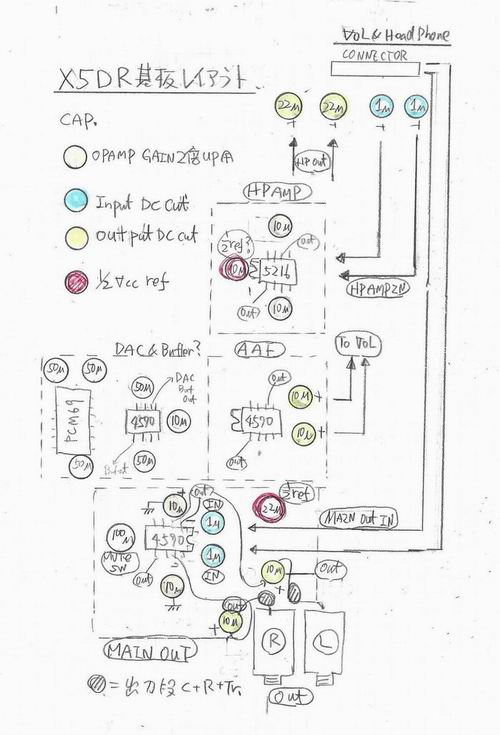 VOL & HeadPhone
CONNECTOR
X5DR 基板レイアウト
22μ
22μ
1μ
1μ
+
+
+
+
CAP.
OPAMP GAIN 2倍UP用
HP OUT
Input DC cut
OUTPUT DC cut
1/2 Vcc ref
HPAMP
10μ
out
1/2ref?
10μ
5216
out
10μ
HPAMP IN
To VOL
DAC & Buffer?
AAF
50μ
50μ
PCM69
50μ
50μ
DAC
But
out
4570
10μ
50μ
But out
out
10μ
+
4570
10μ
+
out
out
10μ
IN
1μ
1/2ref
22μ
100μ
MUTE
SW
4570
1μ
IN
MAIN OUT IN
out
10μ
10μ
+
out
out
10μ
+
R
L
MAIN OUT
= 出力段 C+R+Tr.
out